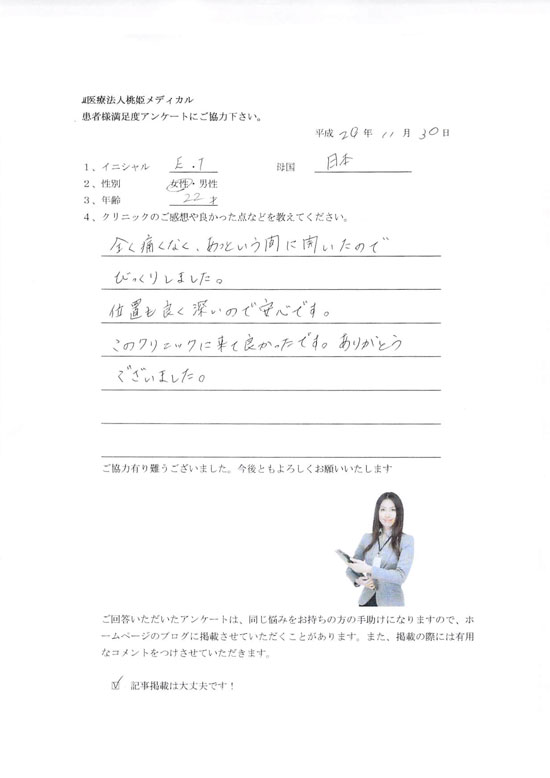 医療法人桃姫メディカル
患者様満足度アンケートにご協力下さい。
平成 29 年 11 月 30 日
1、イニシャル E.T 母国 日本
2、性別 女性・男性
3、年齢 22才
4、クリニックのご感想や良かった点などを教えてください。
全く痛くなく、あっという間に開いたので
びっくりしました。
位置も良く深いので安心です。
このクリニックに来て良かったです。ありがとう
ございました。
ご協力有り難うございました。今後ともよろしくお願いいたします
ご回答いただいたアンケートは、同じ悩みをお持ちの方の手助けになりますので、ホ
ームページのブログに掲載させていただくことがあります。また、掲載の際には有用
なコメントをつけさせていただきます。
☑ 記事掲載は大丈夫です！